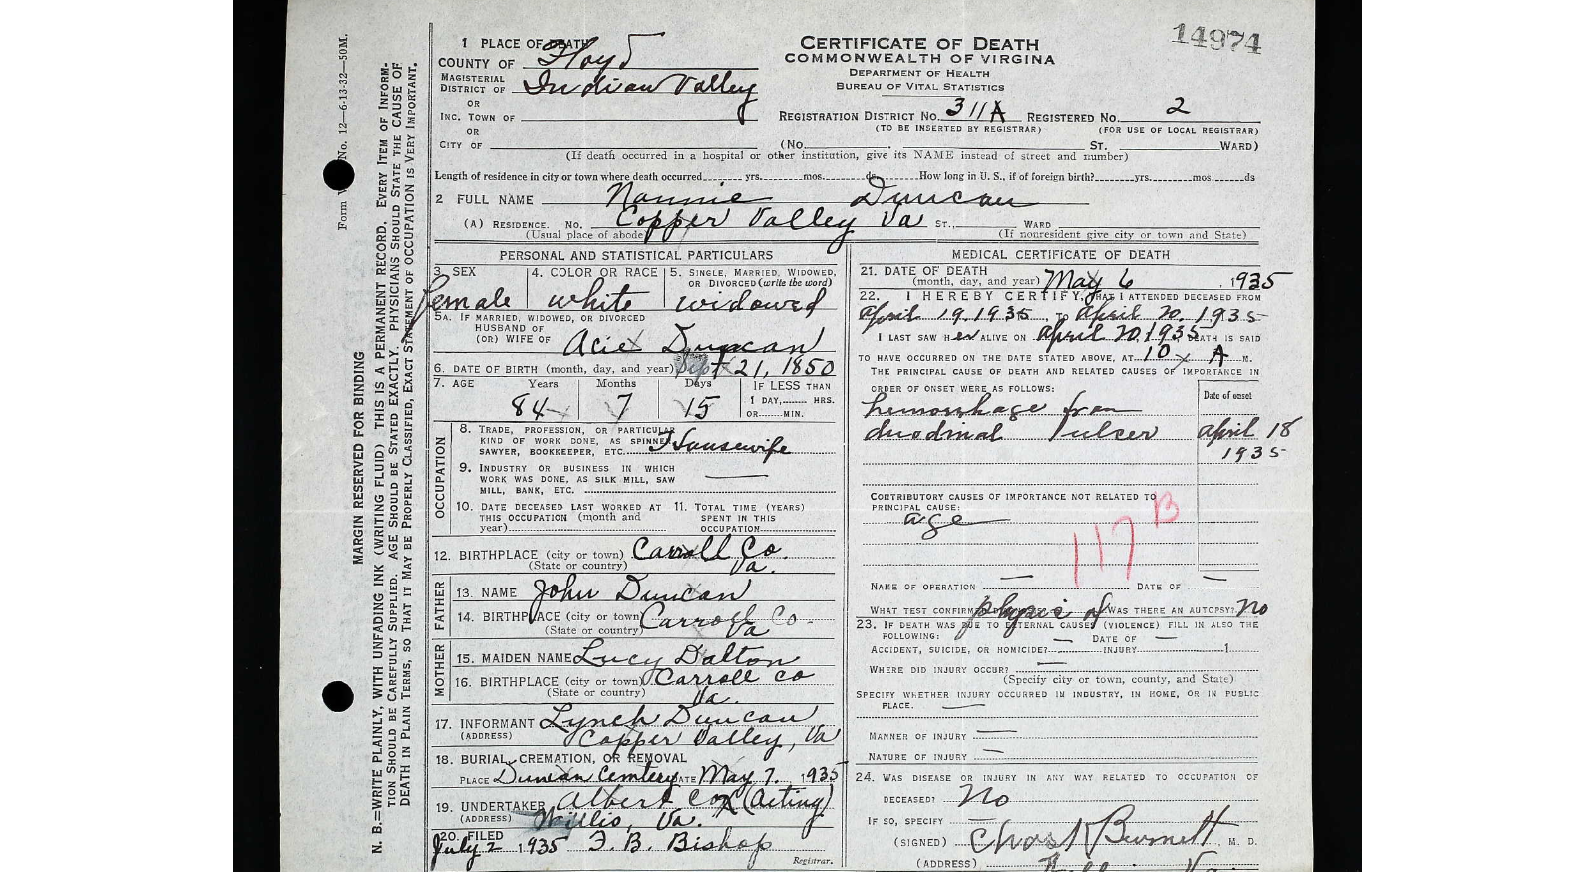 14974
CERTIFICATE OF DEATH
COMMONWEALTH OF VIRGINA
DEPARTMENT OF HEALTH
BUREAU OF VITAL STATISTICS
1 PLACE OF DEATH
COUNTY OF Floyd
MAGISTERIAL
DISTRICT OF Indian Valley
OR
INC. TOWN OF
OR
CITY OF
REGISTRATION DISTRICT No. 311A REGISTERED No. 2
(TO BE INSERTED BY REGISTRAR) (FOR USE OF LOCAL REGISTRAR)
(No. ST. WARD)
(If death occurred in a hospital or other institution, give its NAME instead of street and number)
Length of residence in city or town where death occurred yrs. mos. ds. How long in U. S., if of foreign birth? yrs. mos ds
2 FULL NAME Nannie Duncan
(A) RESIDENCE. No. Copper Valley Va ST., WARD
(Usual place of abode) (If nonresident give city or town and State)
PERSONAL AND STATISTICAL PARTICULARS
3. SEX 4. COLOR OR RACE 5. SINGLE, MARRIED, WIDOWED,
OR DIVORCED (write the word)
Female white widowed
5A. IF MARRIED, WIDOWED, OR DIVORCED
HUSBAND OF
(OR) WIFE OF Acie Duncan
6. DATE OF BIRTH (month, day, and year) Sept 21, 1850
7. AGE Years Months Days IF LESS THAN
84 7 15 1 DAY, HRS.
OR MIN.
OCCUPATION
8. TRADE, PROFESSION, OR PARTICULAR
KIND OF WORK DONE, AS SPINNER
SAWYER, BOOKKEEPER, ETC. Housewife
9. INDUSTRY OR BUSINESS IN WHICH
WORK WAS DONE, AS SILK MILL, SAW
MILL, BANK, ETC.
10. DATE DECEASED LAST WORKED AT
THIS OCCUPATION (month and
year)
11. TOTAL TIME (YEARS)
SPENT IN THIS
OCCUPATION
12. BIRTHPLACE (city or town) Carroll Co.
(State or country) Va.
FATHER
13. NAME John Duncan
14. BIRTHPLACE (city or town) Carroll Co.
(State or country) Va
MOTHER
15. MAIDEN NAME Lucy Dalton
16. BIRTHPLACE (city or town) Carroll Co
(State or country) Va.
17. INFORMANT Lynch Duncan
(ADDRESS) Copper Valley, Va
18. BURIAL, CREMATION, OR REMOVAL
PLACE Duncan Cemtery DATE May 7. 1935
19. UNDERTAKER Albert Cox (Acting)
(ADDRESS) Willis, Va.
20. FILED
July 2 1935 F. B. Bishop
Registrar.
MEDICAL CERTIFICATE OF DEATH
21. DATE OF DEATH
(month, day, and year) May 6, 1935
22. I HEREBY CERTIFY, THAT I ATTENDED DECEASED FROM
April 19. 1935, TO April 20. 1935
I LAST SAW her ALIVE ON April 20, 1935 DEATH IS SAID
TO HAVE OCCURRED ON THE DATE STATED ABOVE, AT 10 A M.
THE PRINCIPAL CAUSE OF DEATH AND RELATED CAUSES OF IMPORTANCE IN
ORDER OF ONSET WERE AS FOLLOWS:
Date of onset
hemorrhage from
duodinal Pulser April 18
1935
CONTRIBUTORY CAUSES OF IMPORTANCE NOT RELATED TO
PRINCIPAL CAUSE:
age
117 B
NAME OF OPERATION DATE OF
WHAT TEST CONFIRMED WAS THERE AN AUTOPSY? No
23. IF DEATH WAS DUE TO EXTERNAL CAUSES (VIOLENCE) FILL IN ALSO THE
FOLLOWING: DATE OF
ACCIDENT, SUICIDE, OR HOMICIDE? INJURY 1
WHERE DID INJURY OCCUR?
(Specify city or town, county, and State)
SPECIFY WHETHER INJURY OCCURRED IN INDUSTRY, IN HOME, OR IN PUBLIC
PLACE.
MANNER OF INJURY
NATURE OF INJURY
24. WAS DISEASE OR INJURY IN ANY WAY RELATED TO OCCUPATION OF
DECEASED? No
IF SO, SPECIFY
(SIGNED) Chas Burnett, M. D.
(ADDRESS) Va
MARGIN RESERVED FOR BINDING
N. B.=WRITE PLAINLY, WITH UNFADING INK (WRITING FLUID) THIS IS A PERMANENT RECORD. EVERY ITEM OF INFORM-
TION SHOULD BE CAREFULLY SUPPLIED. AGE SHOULD BE STATED EXACTLY. PHYSICIANS SHOULD STATE THE CAUSE OF
DEATH IN PLAIN TERMS, SO THAT IT MAY BE PROPERLY CLASSIFIED, EXACT STATEMENT OF OCCUPATION IS VERY IMPORTANT.
Form V No. 12—6-13-32—50M.